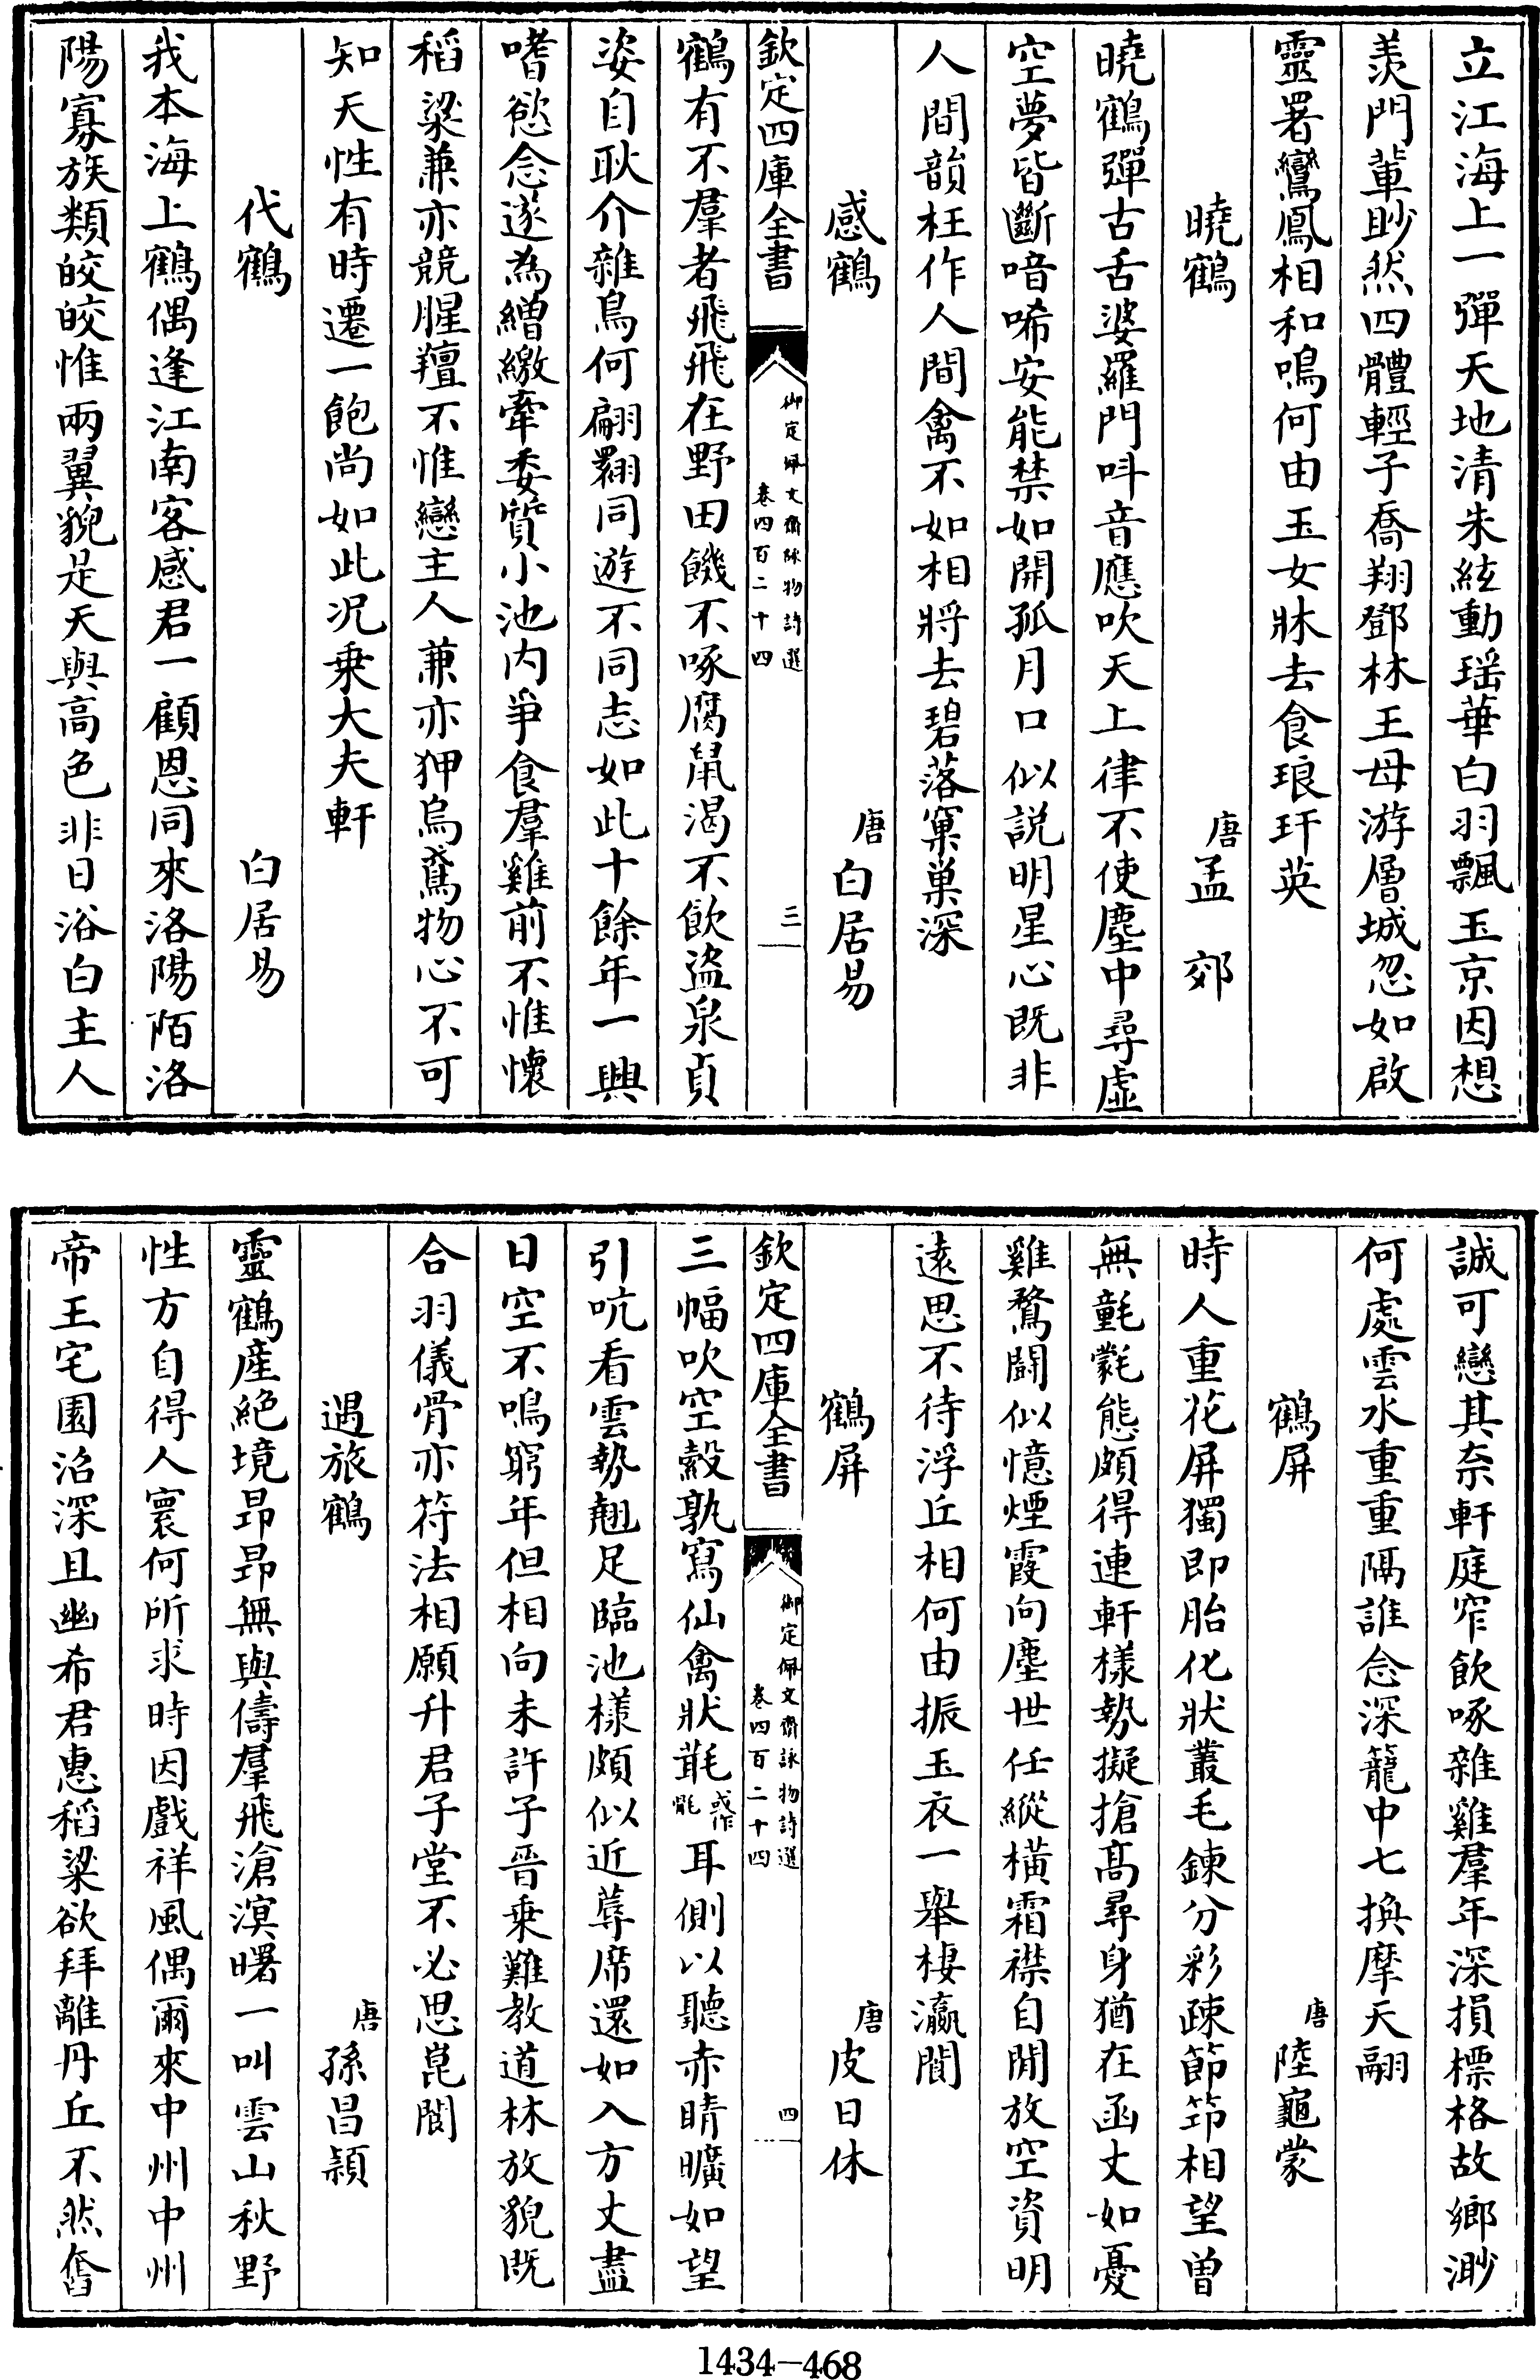 立江海上一彈天地清朱絃動瑶華白羽飄玉京因想
羨門輩眇然四體輕子喬翔鄧林王母游層城忽如啟
靈署鸞鳳相和鳴何由玉女牀去食琅玕英
曉鶴 唐孟郊
曉鶴彈古舌婆羅門呌音應吹天上律不使塵中尋虛
空夢皆斷喑唏安能禁如開孤月口似説明星心既非
人間韻枉作人間禽不如相將去碧落窠巢深
感鶴 唐白居易
欽定四庫全書 御定佩文齋詠物詩選 卷四百二十四 三
鶴有不羣者飛飛在野田饑不啄腐鼠渴不飲盜泉貞
姿自耿介雜鳥何翩翾同遊不同志如此十餘年一興
嗜慾念遂為繒繳牽委質小池内爭食羣雞前不惟懷
稻粱兼亦競腥羶不惟戀主人兼亦狎烏鳶物心不可
知天性有時遷一飽尚如此况乗大夫軒
代鶴 白居易
我本海上鶴偶逢江南客感君一顧恩同來洛陽陌洛
陽寡族類皎皎惟兩翼貌是天與高色非日浴白主人
誠可戀其奈軒庭窄飲啄雜雞羣年深損標格故鄉渺
何處雲水重重隔誰念深籠中七換摩天翮
鶴屏 唐陸龜蒙
時人重花屏獨即胎化狀叢毛鍊分彩疎節筇相望曽
無氃氋態頗得連軒様勢擬搶髙尋身猶在函丈如憂
雞鶩鬪似憶煙霞向塵世任縱横霜襟自閒放空資明
逺思不待浮丘相何由振玉衣一舉棲瀛閬
鶴屏 唐皮日休
欽定四庫全書 御定佩文齋詠物詩選 卷四百二十四 四
三幅吹空縠孰寫仙禽狀毦或作㲯耳側以聽赤睛曠如望
引吭看雲勢翹足臨池様頗似近蓐席還如入方丈盡
日空不鳴窮年但相向未許子晉乗難教道林放貌既
合羽儀骨亦符法相願升君子堂不必思崑閬
遇旅鶴 唐孫昌頴
靈鶴産絶境昻昻無與儔羣飛滄溟曙一叫雲山秋野
性方自得人寰何所求時因戲祥風偶爾來中州中州
帝王宅園沼深且幽希君惠稻粱欲拜離丹丘不然奮
1434—468